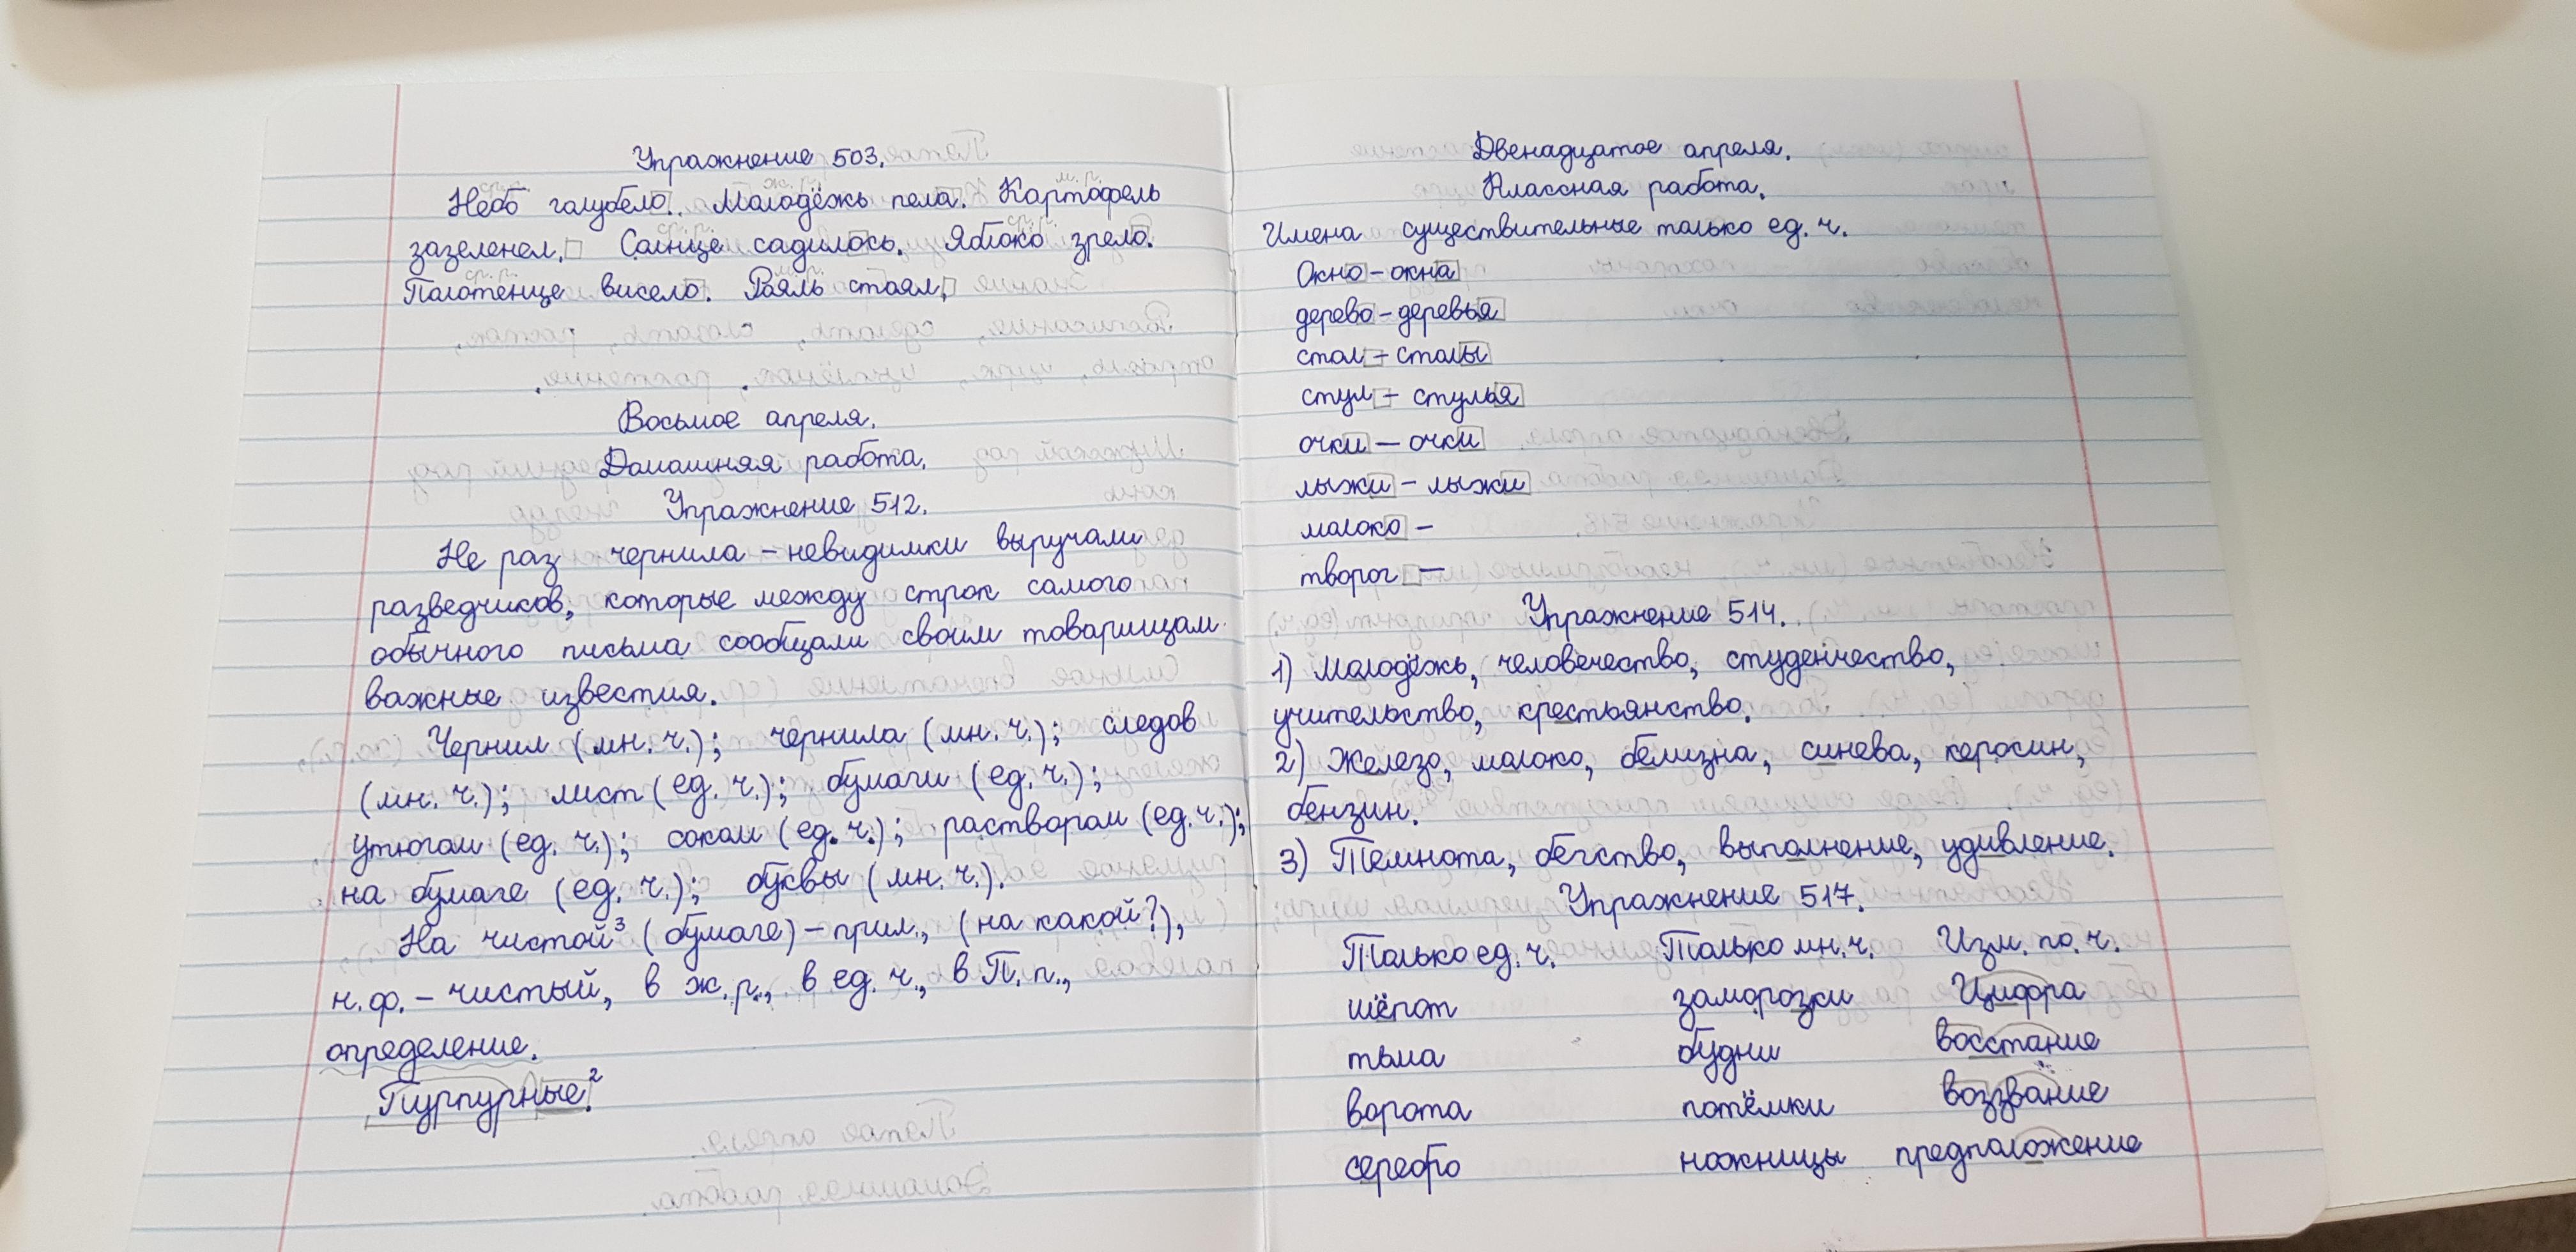 Упражнение 503.
ср.р. ж.р. м.р.
Небо голубело. Молодёжь пела. Картофель
ср.р. ср.р.
зазеленел. Солнце садилось. Яблоко зрело.
ср.р. м.р.
Полотенце висело. Рояль стоял.
Восьмое апреля.
Домашняя работа.
Упражнение 512.
Не раз чернила - невидимки выручали
разведчиков, которые между строк самого
обычного письма сообщали своим товарищам
важные известия.
Чернил (мн. ч.); чернила (мн. ч.); следов
(мн. ч.); лист (ед. ч.); бумаги (ед. ч.);
утюгом (ед. ч.); соком (ед. ч.); раствором (ед. ч.);
на бумаге (ед. ч.); буквы (мн. ч.).
На чистой³ (бумаге) - прил., (на какой?),
н. ф. - чистый, в ж. р., в ед. ч., в П. п.,
определение.
Пурпурные.²
Двенадцатое апреля.
Классная работа.
Имена существительные только ед. ч.
Окно - окна
дерево - деревья
стол - столы
стул - стулья
очки - очки
лыжи - лыжи
молоко -
творог -
Упражнение 514.
1) Молодёжь, человечество, студенчество,
учительство, крестьянство.
2) Железо, молоко, белизна, синева, керосин,
бензин.
3) Темнота, бегство, выполнение, удивление.
Упражнение 517.
Только ед. ч. Только мн. ч. Изм. по. ч.
шёпот заморозки Цифра
тьма будни восстание
ворота потёмки воззвание
серебро ножницы предположение